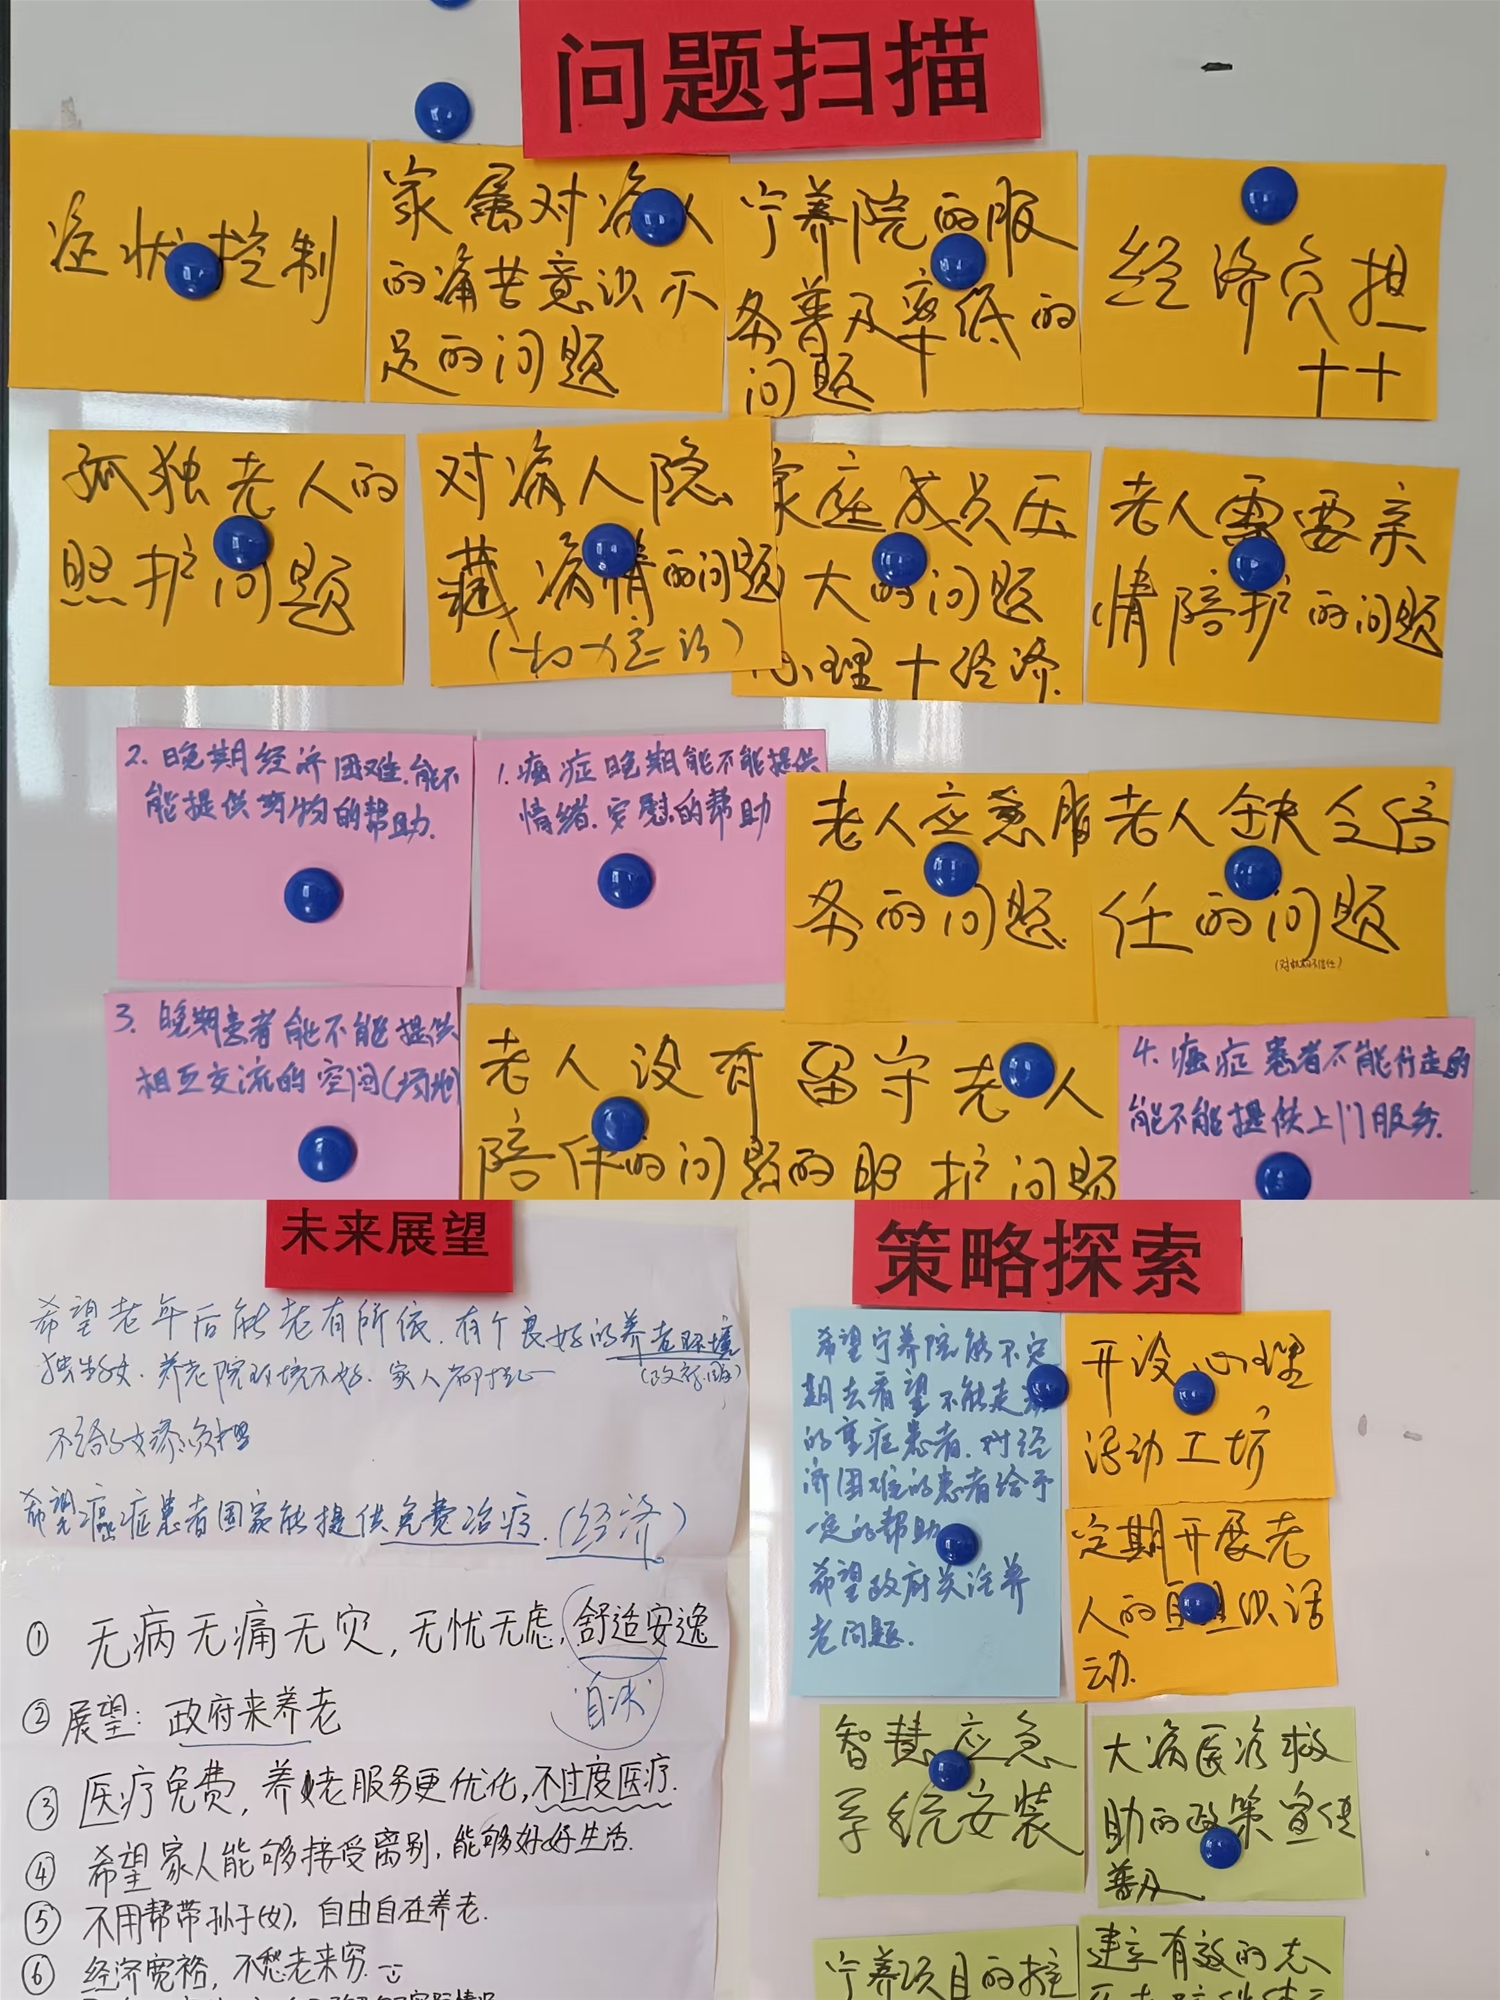 问题扫描
症状控制
家属对病人
的痛苦意识不
足的问题
宁养院的服
务普及率低的
问题
经济负担
++
孤独老人的
照护问题
对病人隐
藏病情的问题
家庭成员压
大的问题
心理+经济
老人需要亲
情陪护的问题
2. 晚期经济困难.能不
能提供药物的帮助.
1. 癌症晚期能不能提供
情绪.安慰的帮助
老人应急服
务的问题
老人缺乏信
任的问题
3. 晚期患者能不能提供
相互交流的空间(场地)
老人没有
陪伴的问题
留守老人
的照护问题
4. 癌症患者不能行走的
能不能提供上门服务.
未来展望
希望老年后能老有所依.有个良好的养老环境
独生子女.养老院环境不好.家人都担心
不给子女添负担
希望癌症患者国家能提供免费治疗.(经济)
① 无病无痛无灾,无忧无虑,舒适安逸
② 展望:政府来养老
③ 医疗免费,养老服务更优化,不过度医疗.
④ 希望家人能够接受离别,能够好好生活.
⑤ 不用帮带孙子(女),自由自在养老.
⑥ 经济宽裕,不愁老来穷.
策略探索
希望宁养院能不定
期去看望不能走动
的重症患者.对经
济困难的患者给予
一定的帮助
希望政府关注养
老问题.
开设心理
活动工坊
定期开展老
人的组织活
动.
智慧应急
系统安装
大病医疗救
助的政策宣传
普及
宁养项目的推
建立有效的志